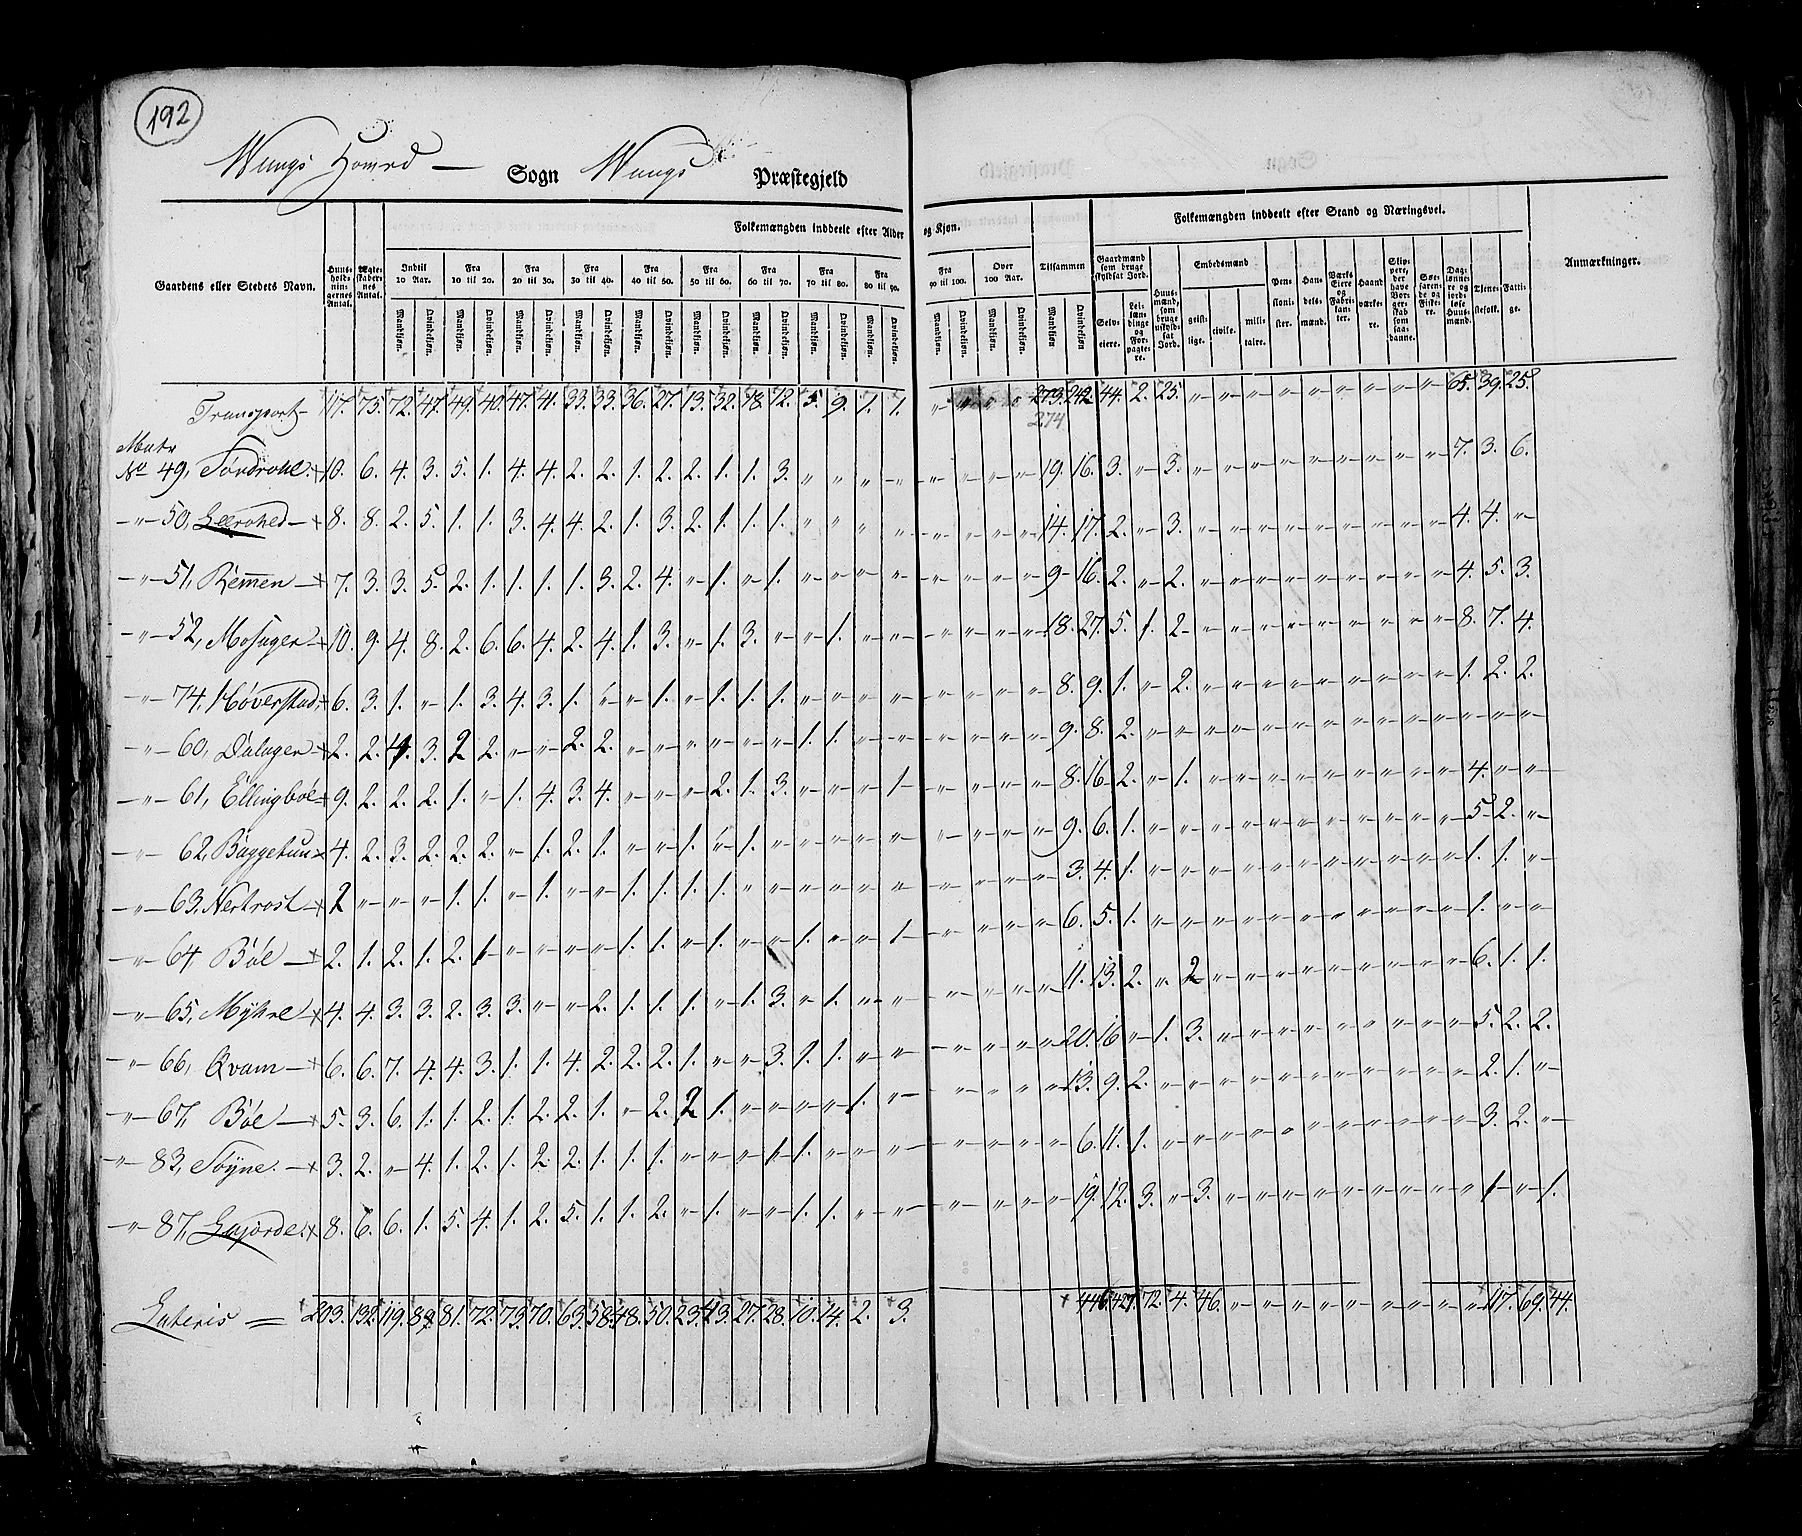 192
Wangs Hoved — Sogn Wangs Præstegjeld
Gaardens eller Stedets Navn. Huus-holdnin-gernes Antal. Ægte-skaber-nes Antal. Folkemængden inddeelt efter Alder og Kjøn. Tilsammen Folkemængden inddeelt efter Stand og Næringsvei. Anmærkninger.
Indtil 10 Aar. Fra 10 til 20. Fra 20 til 30. Fra 30 til 40. Fra 40 til 50. Fra 50 til 60. Fra 60 til 70. Fra 70 til 80. Fra 80 til 90. Fra 90 til 100. Over 100 Aar. Gaardmænd som bruge skyldsat Jord. Embedsmænd
Mandkjøn. Qvindekjøn. Selv-eiere. Lei-lændinge og For-pagte-re. Huus-mænd, som bruge uskyld-sat Jord. geist-lige. civile. mili-taire. Pen-sioni-ster. Han-dels-mænd. Værks Eiere og Fabri-kan-ter. Haand værke-re. Skip-pere, der have Bor-ger-skab som saa-danne. Søe-farende og Fiske-re. Dag-lønne-re og jord-løse Huus-mænd. Tjene-stefolk. Fatti-ge.
Transport 117. 75. 72. 47. 49. 40. 47. 41. 33. 33. 36. 27. 13. 32. 18. 12. 5. 9. 1. 1. " " " " 273. 242. 44. 2. 25. " " " " " " " " " 65. 39. 25.
274
Matr
No 49, Tordrohl 10. 6. 4. 3. 5. 1. 4. 4. 2. 2. 1. 2. 2. 1. 1. 3. " " " " " " " " 19. 16. 3. " 3. " " " " " " " " " 7. 3. 6.
" 50, Leerohed 8. 8. 2. 5. 1. 1. 3. 4. 4. 2. 1. 3. 2. 1. 1. 1. " " " " " " " " 14. 17. 2. " 3. " " " " " " " " " 4. 4. "
" 51, Remen 7. 3. 3. 5. 2. 1. 1. 1. 1. 3. 2. 4. " 1. " 1. " " " " " " " " 9 16. 2. " 2. " " " " " " " " " 4. 5. 3.
" 52, Mosager 10. 9. 4. 8. 2. 6. 6. 4. 2. 4. 1. 3. " 1. 3. " " 1. " " " " " " 18. 27. 5. 1. 2 " " " " " " " " " 8. 7. 4.
" 74. Høverstad 6. 3. 1. " 1. 3. 4. 3. 1. " " 1. " 1. 1. 1. " " " " " " " " 8. 9. 1. " 2. " " " " " " " " " 1. 2. 2.
" 60, Dalager 2. 2. 4. 3. 2 2. " " 2. 2. " " " " " " 1. 1. " " " " " " 9. 8. 2. " " " " " " " " " " " " " "
" 61, Ellingböe 9. 2. 2. 2. 1. " 1. 4. 3. 4. " " " 2. 1. 3. " " " 1 " " " " 8. 16 2. " 1. " " " " " " " " " 4. " "
" 62, Baggetun 4. 2. 3. 2. 2. 2. " 1. 2. 1. " " 1. " 1. " " " " " " " " " 9. 6. 1. " " " " " " " " " " " 5. 2. "
" 63, Nertrost 2 " " " 1. 1. " 1. " " 1. 1. 1. 1. " " " " " " " " " " 3. 4. 1. " " " " " " " " " " " 1. 1. "
" 64, Böe 2. 1. 2. 1. 2. 1 " " " " 1. 1. " 1. " " 1. " " 1 " " " " 6. 5. 1. " " " " " " " " " " " 1. " "
" 65, Myhre 4. 4. 3. 3. 2. 3. 3. " " 2. 1. 1. 1. " 1. 3. " 1. " " " " " " 11. 13. 2. " 2 " " " " " " " " " 6. 1. 1.
" 66, Qvam 6. 6. 7. 4. 4. 3. 1. 1. 4. 2. 2. 2. 1. " " 3. 1. 1. " " " " " " 20. 16 " 1. 3. " " " " " " " " " 5. 2. 2.
" 67, Böe 5. 3. 6. 1. 1. 2. 1. 2. 2. 1. " 2. 2 1. " " " " 1. " " " " " 13. 9. 2. " " " " " " " " " " " 2. 1. "
" 83, Töyne 3. 2. " 4. 1. 2. 1. 2. 2. 1. 1. 1. " " " 1. 1. " " " " " " " 6. 11. 1. " " " " " " " " " " " 3. 2. "
" 87, Gajorde 8. 6. 6. 1. 5. 4. 1. 2. 5. 1. 1. 2. " 1. " " 1. 1. " " " " " " 19. 12. 3. " 3. " " " " " " " " " 1 " 1.
Lateris = 203. 132. 119. 89. 81. 72. 73. 70. 63. 58. 48. 50. 23. 43. 27. 28. 10. 14. 2. 3. 446. 427. 72. 4. 46. " " " " " " " " " 117. 69. 44.